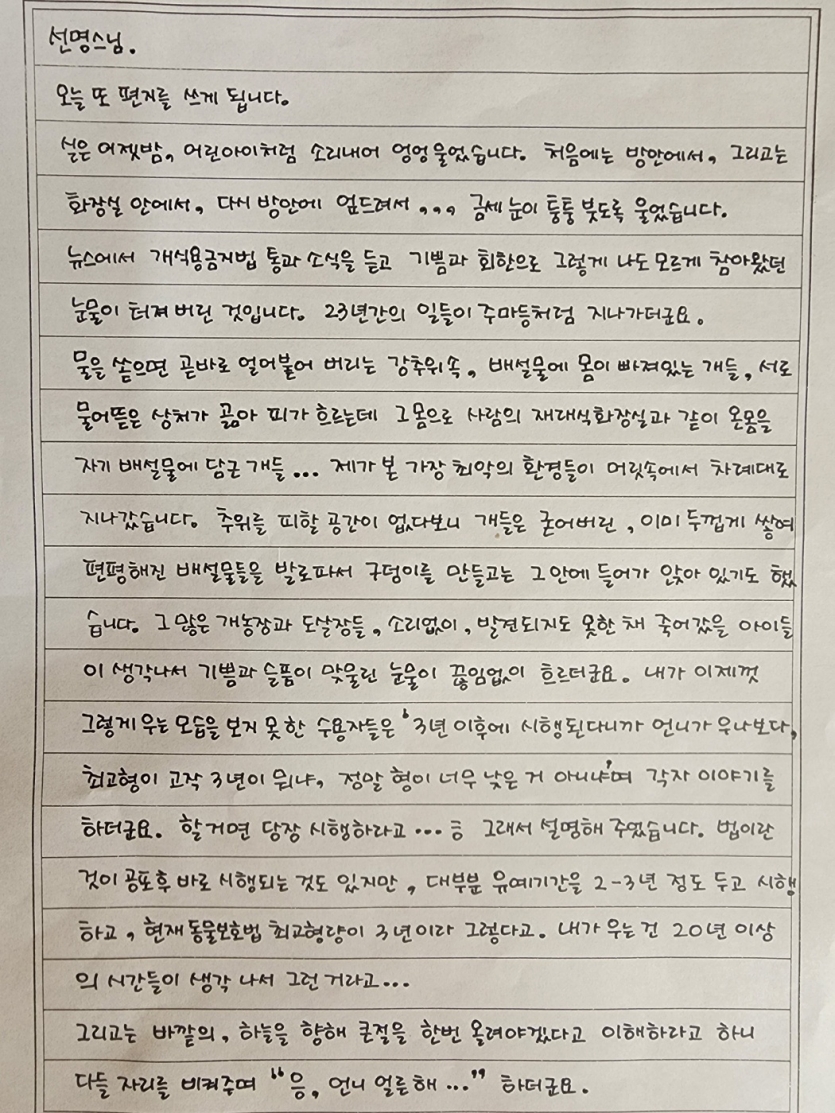 선명스님.
오늘 또 편지를 쓰게 됩니다.
실은 어젯밤, 어린아이처럼 소리내어 엉엉 울었습니다. 처음에는 방안에서, 그리고는
화장실 안에서, 다시 방안에 엎드려서,,, 금세 눈이 퉁퉁 붓도록 울었습니다.
뉴스에서 개식용금지법 통과 소식을 듣고 기쁨과 회한으로 그렇게 나도 모르게 참아왔던
눈물이 터져 버린 것입니다. 23년간의 일들이 주마등처럼 지나가더군요.
물을 쏟으면 곧바로 얼어붙어 버리는 강추위속, 배설물에 몸이 빠져있는 개들, 서로
물어뜯은 상처가 곪아 피가 흐르는데 그몸으로 사람의 재래식화장실과 같이 온몸을
자기 배설물에 담근 개들... 제가 본 가장 최악의 환경들이 머릿속에서 차례대로
지나갔습니다. 추위를 피할 공간이 없다보니 개들은 굳어버린, 이미 두껍게 쌓여
편평해진 배설물들을 발로파서 구덩이를 만들고는 그안에 들어가 앉아 있기도 했
습니다. 그 많은 개농장과 도살장들, 소리없이, 발견되지도 못한 채 죽어갔을 아이들
이 생각나서 기쁨과 슬픔이 맞물린 눈물이 끊임없이 흐르더군요. 내가 이제껏
그렇게 우는 모습을 보지 못 한 수용자들은 '3년 이후에 시행된다니까 언니가 우나보다,
최고형이 고작 3년이 뭐냐, 정말 형이 너무 낮은 거 아니냐'며 각자 이야기를
하더군요. 할거면 당장 시행하라고...ㅎ 그래서 설명해 주었습니다. 법이란
것이 공포후 바로 시행되는 것도 있지만, 대부분 유예기간을 2-3년 정도 두고 시행
하고, 현재 동물보호법 최고형량이 3년이라 그렇다고. 내가 우는 건 20년 이상
의 시간들이 생각 나서 그런 거라고...
그리고는 바깥의, 하늘을 향해 큰절을 한번 올려야겠다고 이해하라고 하니
다들 자리를 비켜주며 "응, 언니 얼른 해..." 하더군요.